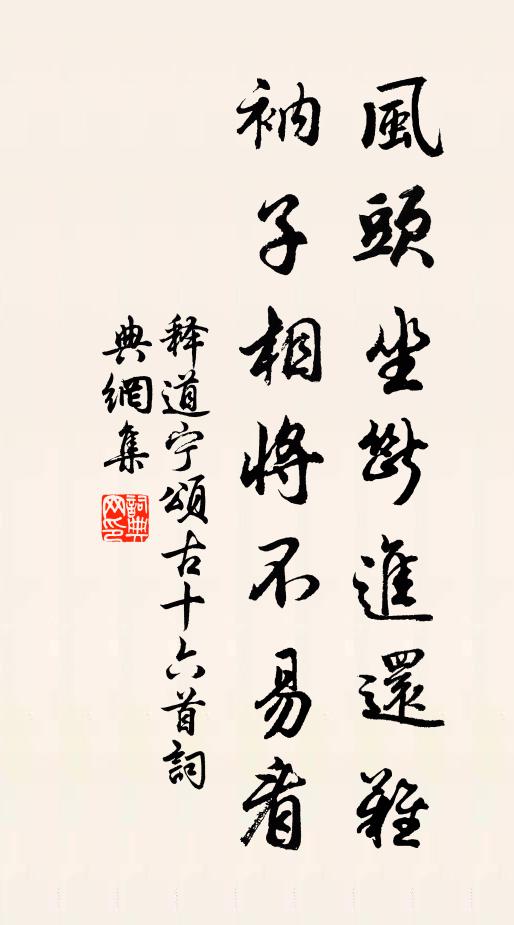 風頭坐斷進還難
衲子相將不易看
释道宁頌古十六首詞
典網集
詞典網印